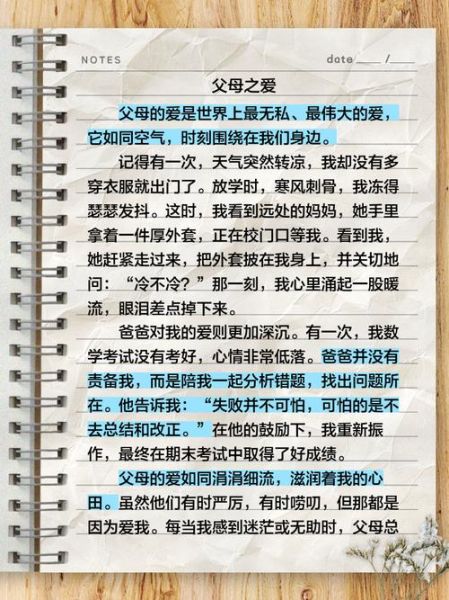 NOTES date ____ /____
父母之爱
父母的爱是世界上最无私、最伟大的爱，
它如同空气，时刻围绕在我们身边。
记得有一次，天气突然转凉，我却没有多
穿衣服就出门了。放学时，寒风刺骨，我冻得
瑟瑟发抖。这时，我看到远处的妈妈，她手里
拿着一件厚外套，正在校门口等我。看到我，
她赶紧走过来，把外套披在我身上，并关切地
问：“冷不冷？”那一刻，我心里涌起一股暖
流，眼泪差点掉下来。
爸爸对我的爱则更加深沉。有一次，我数
学考试没有考好，心情非常低落。爸爸并没有
责备我，而是陪我一起分析错题，找出问题所
在。他告诉我：“失败并不可怕，可怕的是不
去总结和改正。”在他的鼓励下，我重新振
作，最终在期末考试中取得了好成绩。
父母的爱如同涓涓细流，滋润着我的心
田。虽然他们有时严厉，有时唠叨，但那都是
因为爱我。每当我感到迷茫或无助时，父母总